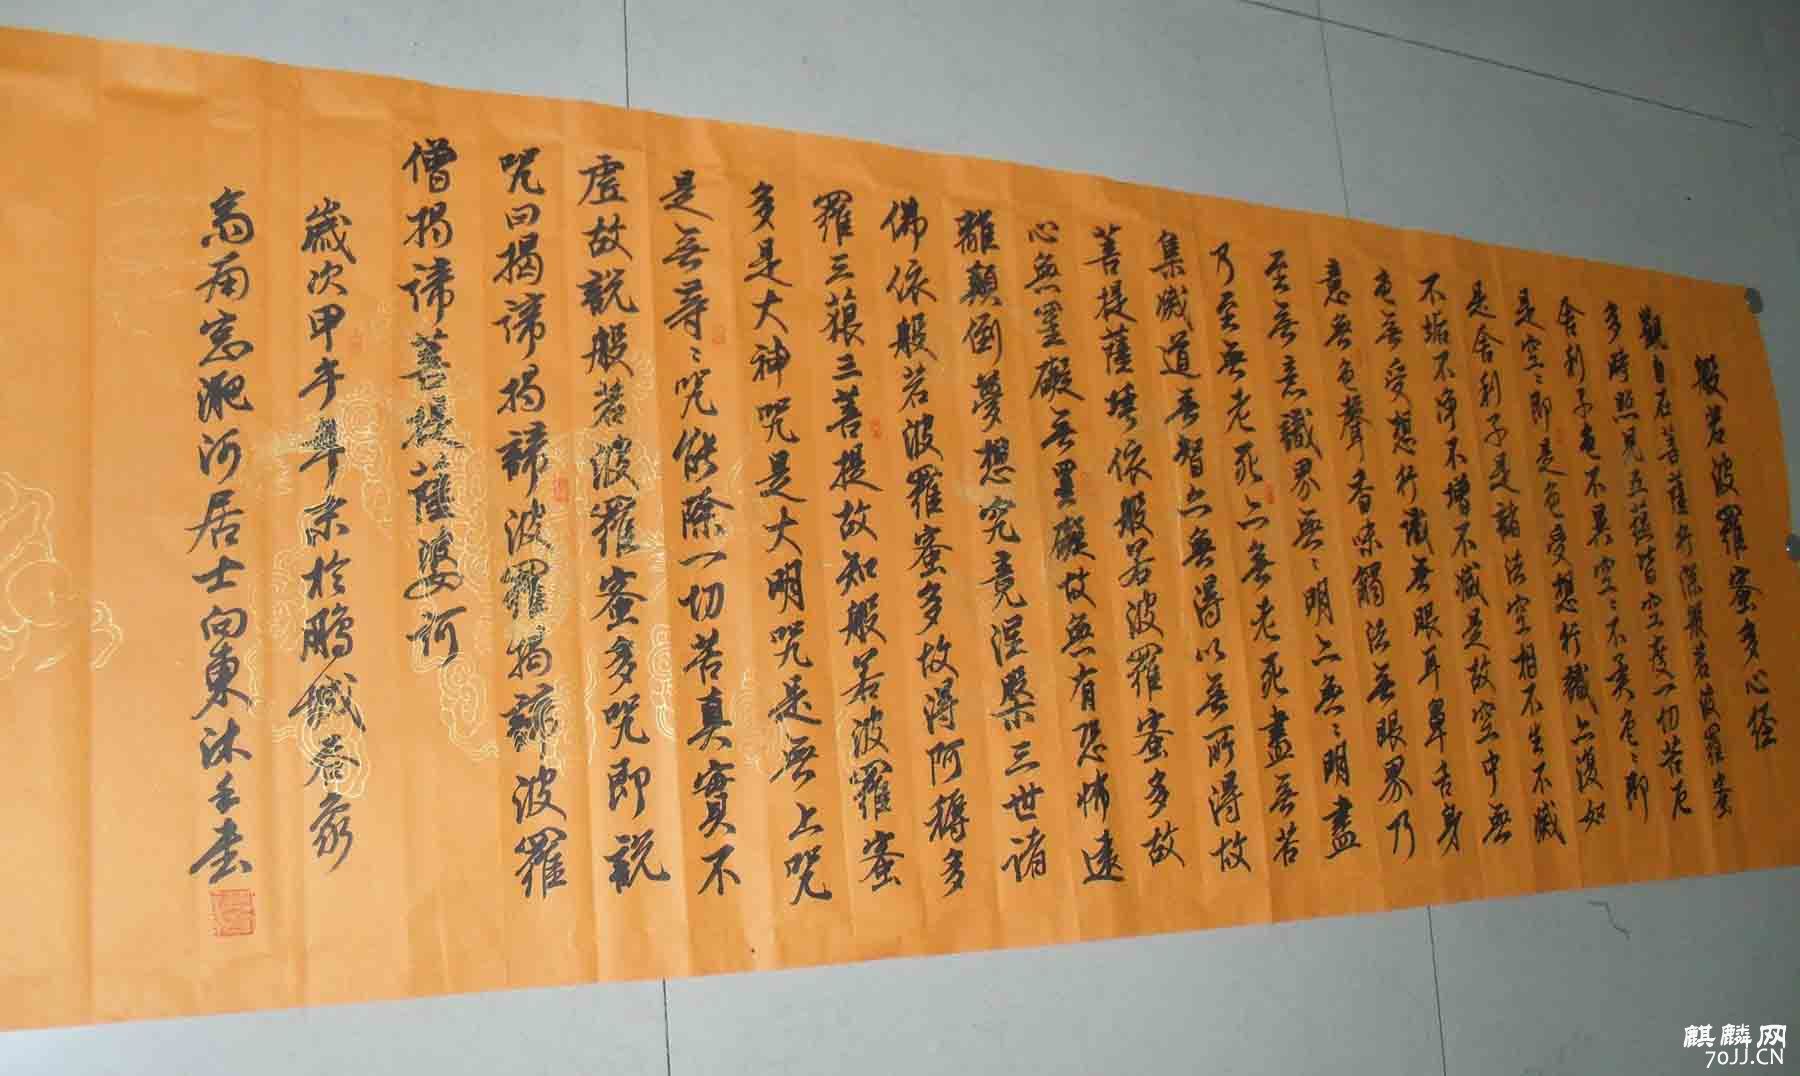 般若波羅蜜多心経
觀自在菩薩行深般若波羅蜜
多時照見五蘊皆空度一切苦厄
舍利子色不異空〻不異色〻即
是空〻即是色受想行識亦復如
是舍利子是諸法空相不生不滅
不垢不淨不增不減是故空中無
色無受想行識無眼耳鼻舌身
意無色聲香味觸法無眼界乃
至無意識界無〻明亦無〻明盡
乃至無老死亦無老死盡無苦
集滅道無智亦無得以無所得故
菩提薩埵依般若波羅蜜多故
心無罣礙無罣礙故無有恐怖遠
離顛倒夢想究竟涅槃三世諸
佛依般若波羅蜜多故得阿耨多
羅三藐三菩提故知般若波羅蜜
多是大神咒是大明咒是無上咒
是無等〻咒能除一切苦真實不
虛故說般若波羅蜜多咒即說
咒曰揭諦揭諦波羅揭諦波羅
僧揭諦菩提薩婆訶
歲次甲午年末於鵬城
淝河居士向東沐手書
麒麟网
70JJ.CN